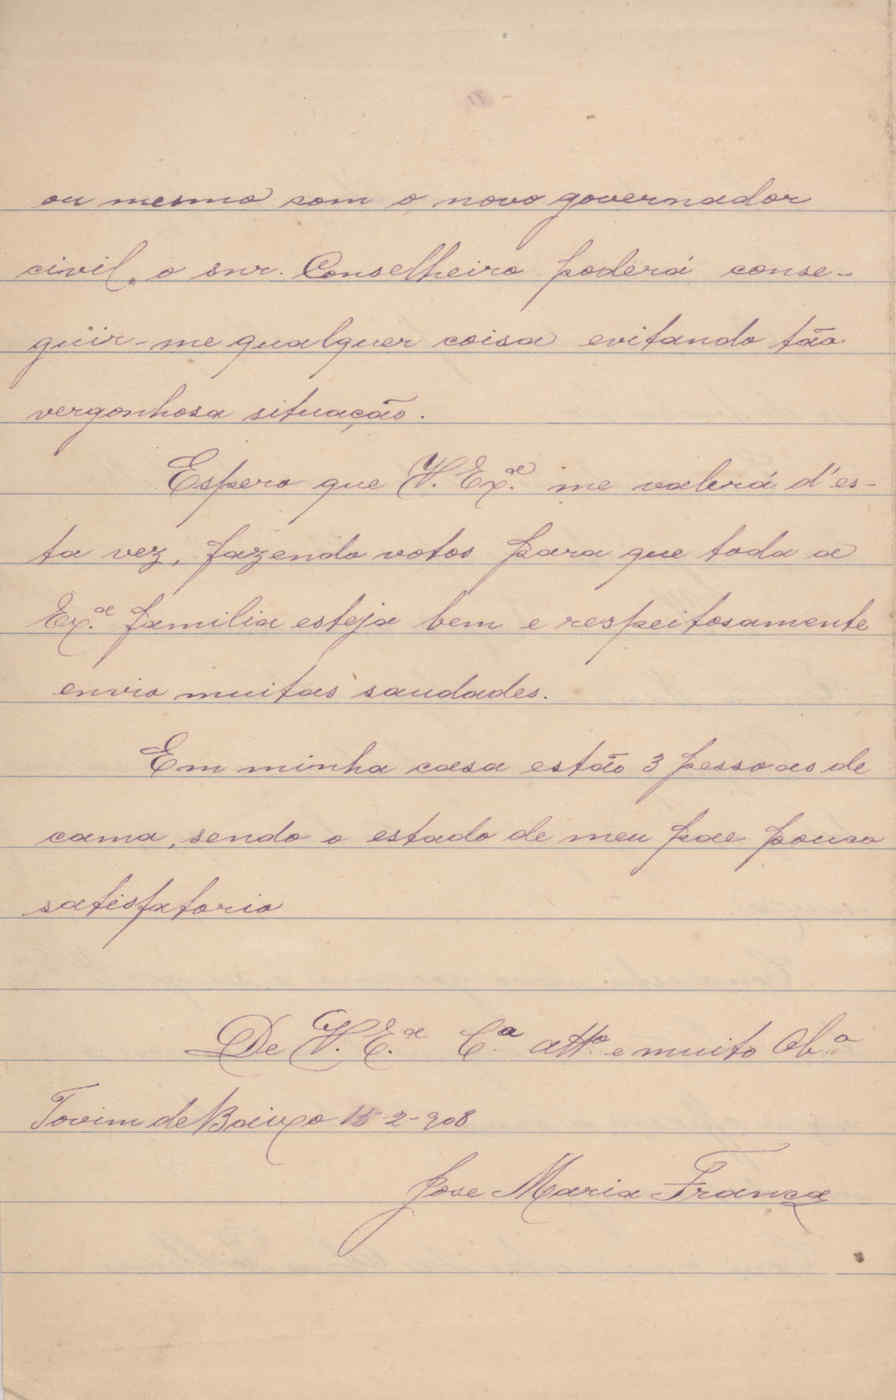 ou mesmo com o novo governador
civil, o snr. Conselheiro poderá conse-
guir-me qualquer coisa evitando tão
vergonhosa situação.
Espero que V. Ex.ª me valerá d'es-
ta vez, fazendo votos para que toda a
Ex.ª familia esteja bem e respeitosamente
envio muitas saudades.
Em minha casa estão 3 pessoas de
cama, sendo o estado de meu pae pouco
satisfatorio
De V. E.ª C.ª attº e muito Ob.º
Tovim de Baixo 15-2-908
Jose Maria França